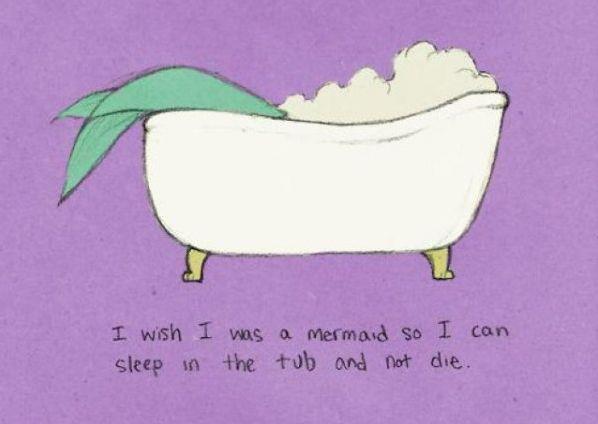 I wish I was a mermaid so I can
sleep in the tub and not die.